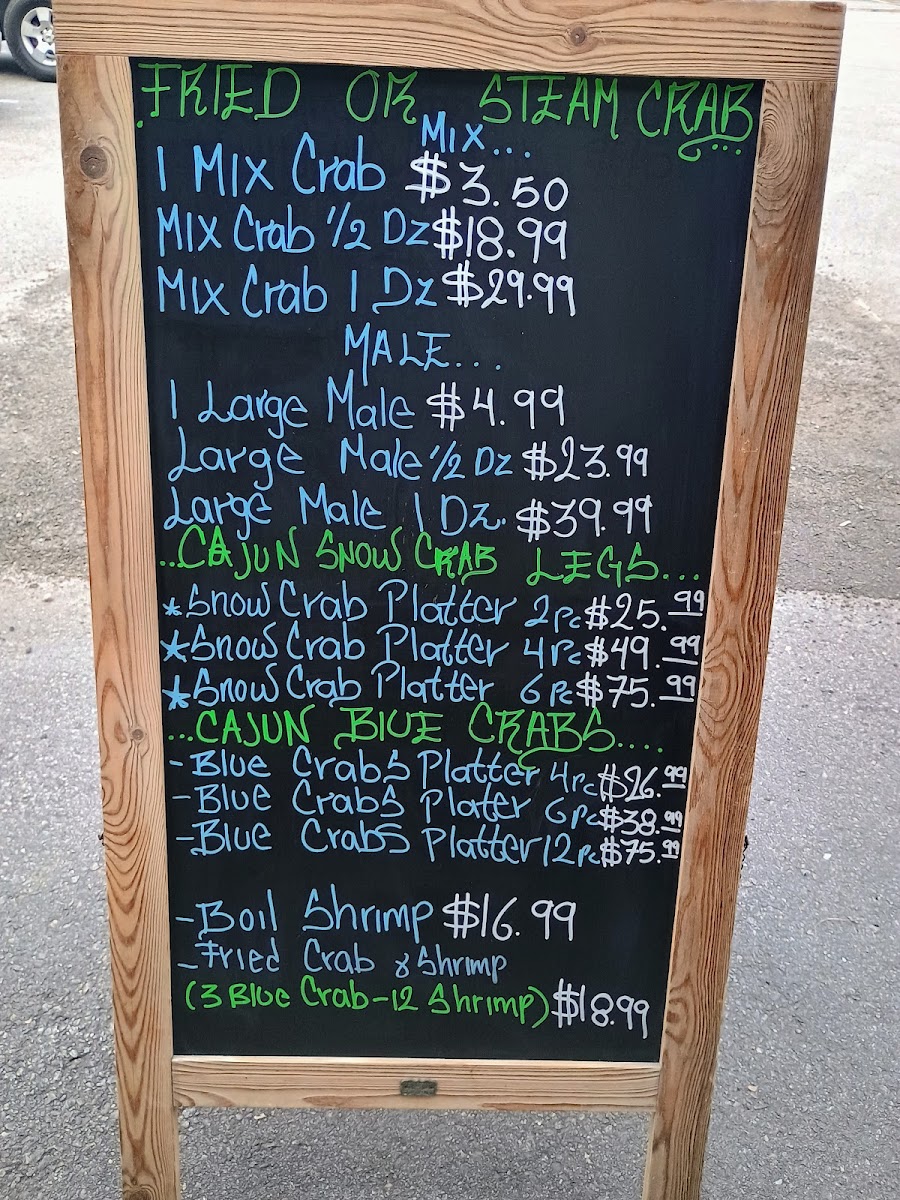 FRIED OR STEAM CRAB...
Mix...
1 Mix Crab $3.50
Mix Crab 1/2 Dz $18.99
Mix Crab 1 Dz $29.99
MALE...
1 Large Male $4.99
Large Male 1/2 Dz $23.99
Large Male 1 Dz. $39.99
...CAJUN SNOW CRAB LEGS...
*Snow Crab Platter 2pc $25.99
*Snow Crab Platter 4pc $49.99
*Snow Crab Platter 6pc $75.99
...CAJUN BLUE CRABS....
-Blue Crabs Platter 4pc $26.99
-Blue Crabs Plater 6pc $38.99
-Blue Crabs Platter 12pc $75.99
-Boil Shrimp $16.99
-Fried Crab & Shrimp
(3 Blue Crab-12 Shrimp) $18.99